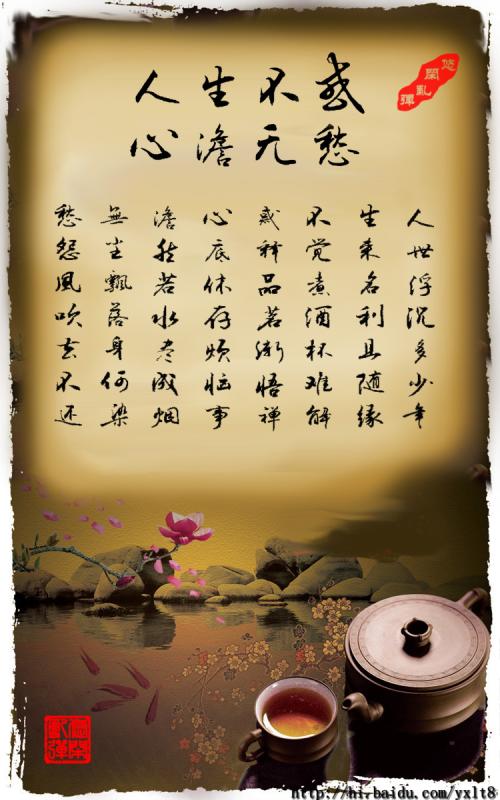 人生不惑
心澹无愁
悠閑亂彈
人世浮沉多少年
生来名利且随缘
不觉煮酒杯难解
惑释品茗渐悟禅
心底休存烦恼事
澹然若水尽成烟
無尘飘落身何染
愁怨風吹去不还
http://hi.baidu.com/yxlt8